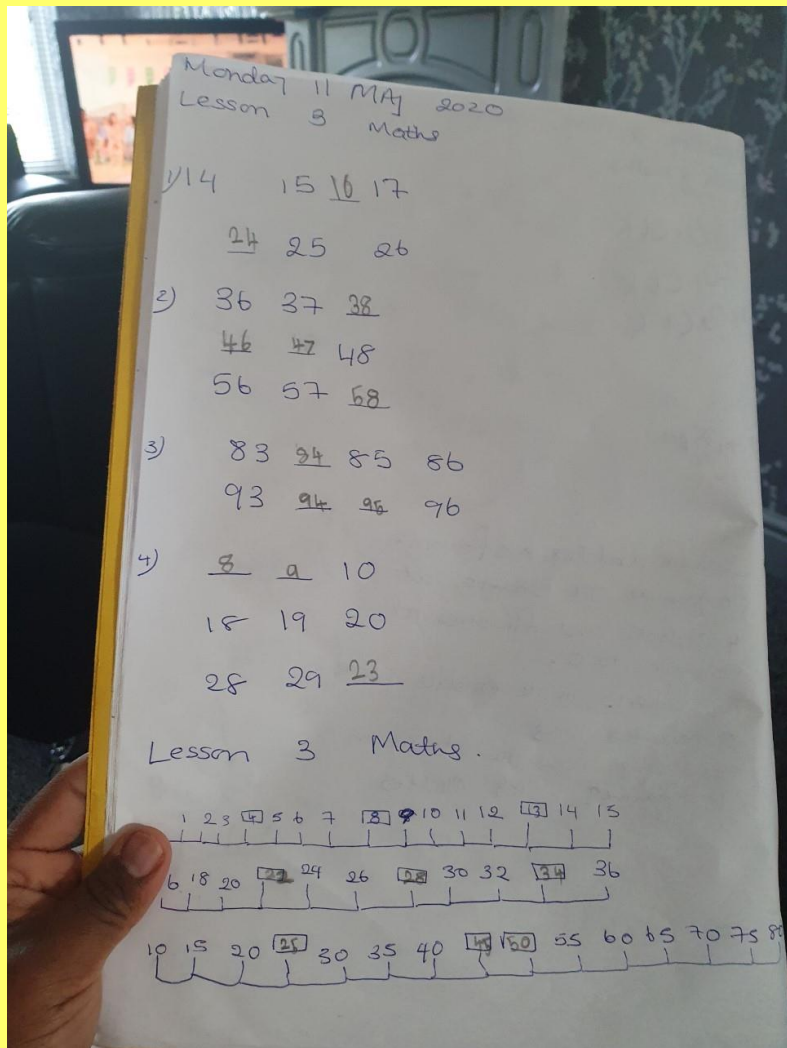 Monday 11 MAy 2020
Lesson 3 Maths
1) 14 15 16 17
24 25 26
2) 36 37 38
46 47 48
56 57 58
3) 83 84 85 86
93 94 95 96
4) 8 9 10
18 19 20
28 29 23
Lesson 3 Maths.
1 2 3 4 5 6 7 8 9 10 11 12 13 14 15
6 18 20 22 24 26 28 30 32 34 36
10 15 20 25 30 35 40 45 50 55 60 65 70 75